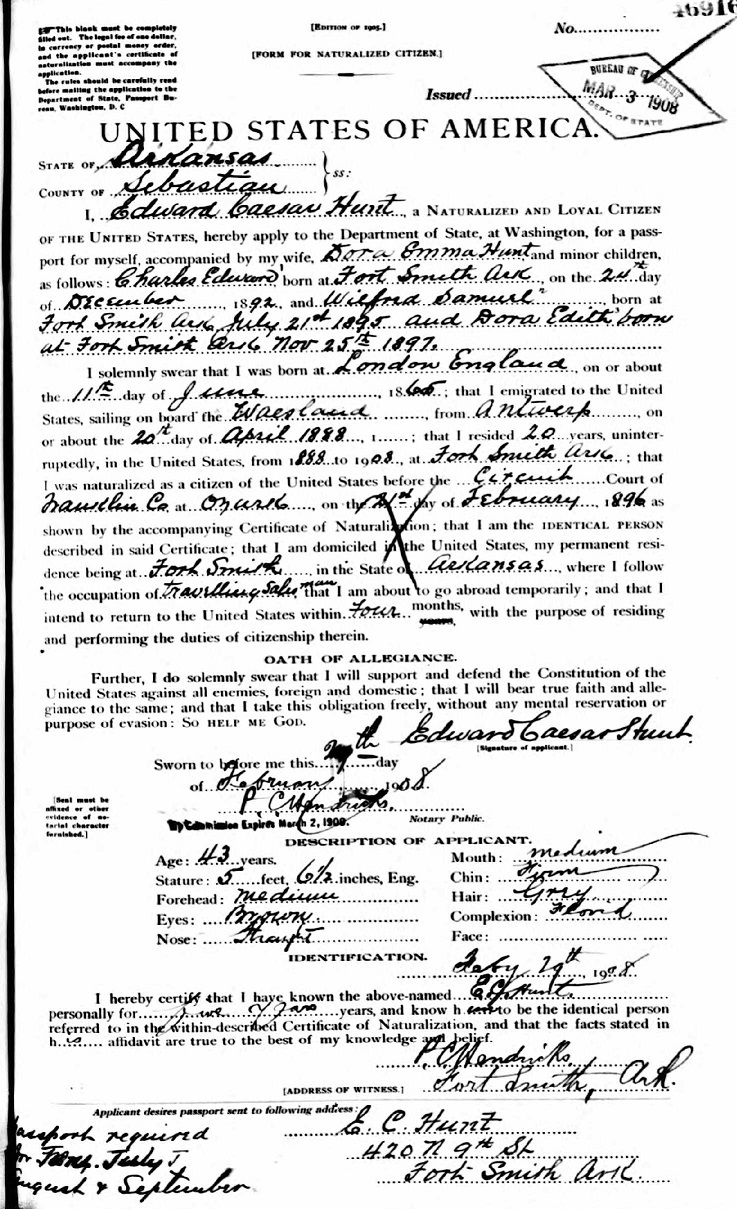 46916
This blank must be completely
filled out. The legal fee of one dollar,
in currency or postal money order,
and the applicant's certificate of
naturalization must accompany the
application.
The rules should be carefully read
before mailing the application to the
Department of State, Passport Bu-
reau, Washington, D. C
[EDITION OF 1905.]
[FORM FOR NATURALIZED CITIZEN.]
No.
Issued
BUREAU OF CITIZENSHIP
MAR 3 1908
DEPT. OF STATE
UNITED STATES OF AMERICA.
STATE OF Arkansas
COUNTY OF Sebastian } ss:
I, Edward Caesar Hunt, a NATURALIZED AND LOYAL CITIZEN
OF THE UNITED STATES, hereby apply to the Department of State, at Washington, for a pass-
port for myself, accompanied by my wife, Dora Emma Hunt and minor children,
as follows: Charles Edward born at Fort Smith Ark, on the 24th day
of December, 1892, and Wilfred Samuel, born at
Fort Smith Ark July 21st 1895 and Dora Edith born
at Fort Smith Ark Nov 25th 1897.
I solemnly swear that I was born at London England, on or about
the 11th day of June, 1865; that I emigrated to the United
States, sailing on board the Waesland, from Antwerp, on
or about the 20th day of April 1888, 1; that I resided 20 years, uninter-
ruptedly, in the United States, from 1888 to 1908, at Fort Smith Ark; that
I was naturalized as a citizen of the United States before the Circuit Court of
Franklin Co at Ozark, on the 21st day of February, 1896 as
shown by the accompanying Certificate of Naturalization; that I am the IDENTICAL PERSON
described in said Certificate; that I am domiciled in the United States, my permanent resi-
dence being at Fort Smith, in the State of Arkansas, where I follow
the occupation of travelling sales man that I am about to go abroad temporarily; and that I
intend to return to the United States within Four months, years, with the purpose of residing
and performing the duties of citizenship therein.
OATH OF ALLEGIANCE.
Further, I do solemnly swear that I will support and defend the Constitution of the
United States against all enemies, foreign and domestic; that I will bear true faith and alle-
giance to the same; and that I take this obligation freely, without any mental reservation or
purpose of evasion: SO HELP ME GOD.
Edward Caesar Hunt.
[Signature of applicant.]
Sworn to before me this day
of February 1908
P. C Hendricks.
[Seal must be
affixed or other
evidence of no-
tarial character
furnished.]
My Commission Expires March 2, 1908.
Notary Public.
DESCRIPTION OF APPLICANT.
Age: 43 years. Mouth: medium
Stature: 5 feet, 6½ inches, Eng. Chin: Firm
Forehead: medium Hair: Grey
Eyes: Brown Complexion: Florid
Nose: Straight Face:
IDENTIFICATION.
Feby 29th, 1908
I hereby certify that I have known the above-named E. C. Hunt.
personally for years, and know him to be the identical person
referred to in the within-described Certificate of Naturalization, and that the facts stated in
his affidavit are true to the best of my knowledge and belief.
P. C Hendricks
[ADDRESS OF WITNESS.] Fort Smith, Ark.
Applicant desires passport sent to following address:
E. C. Hunt
420 N 9th St
Fort Smith Ark.
assport required
August & September